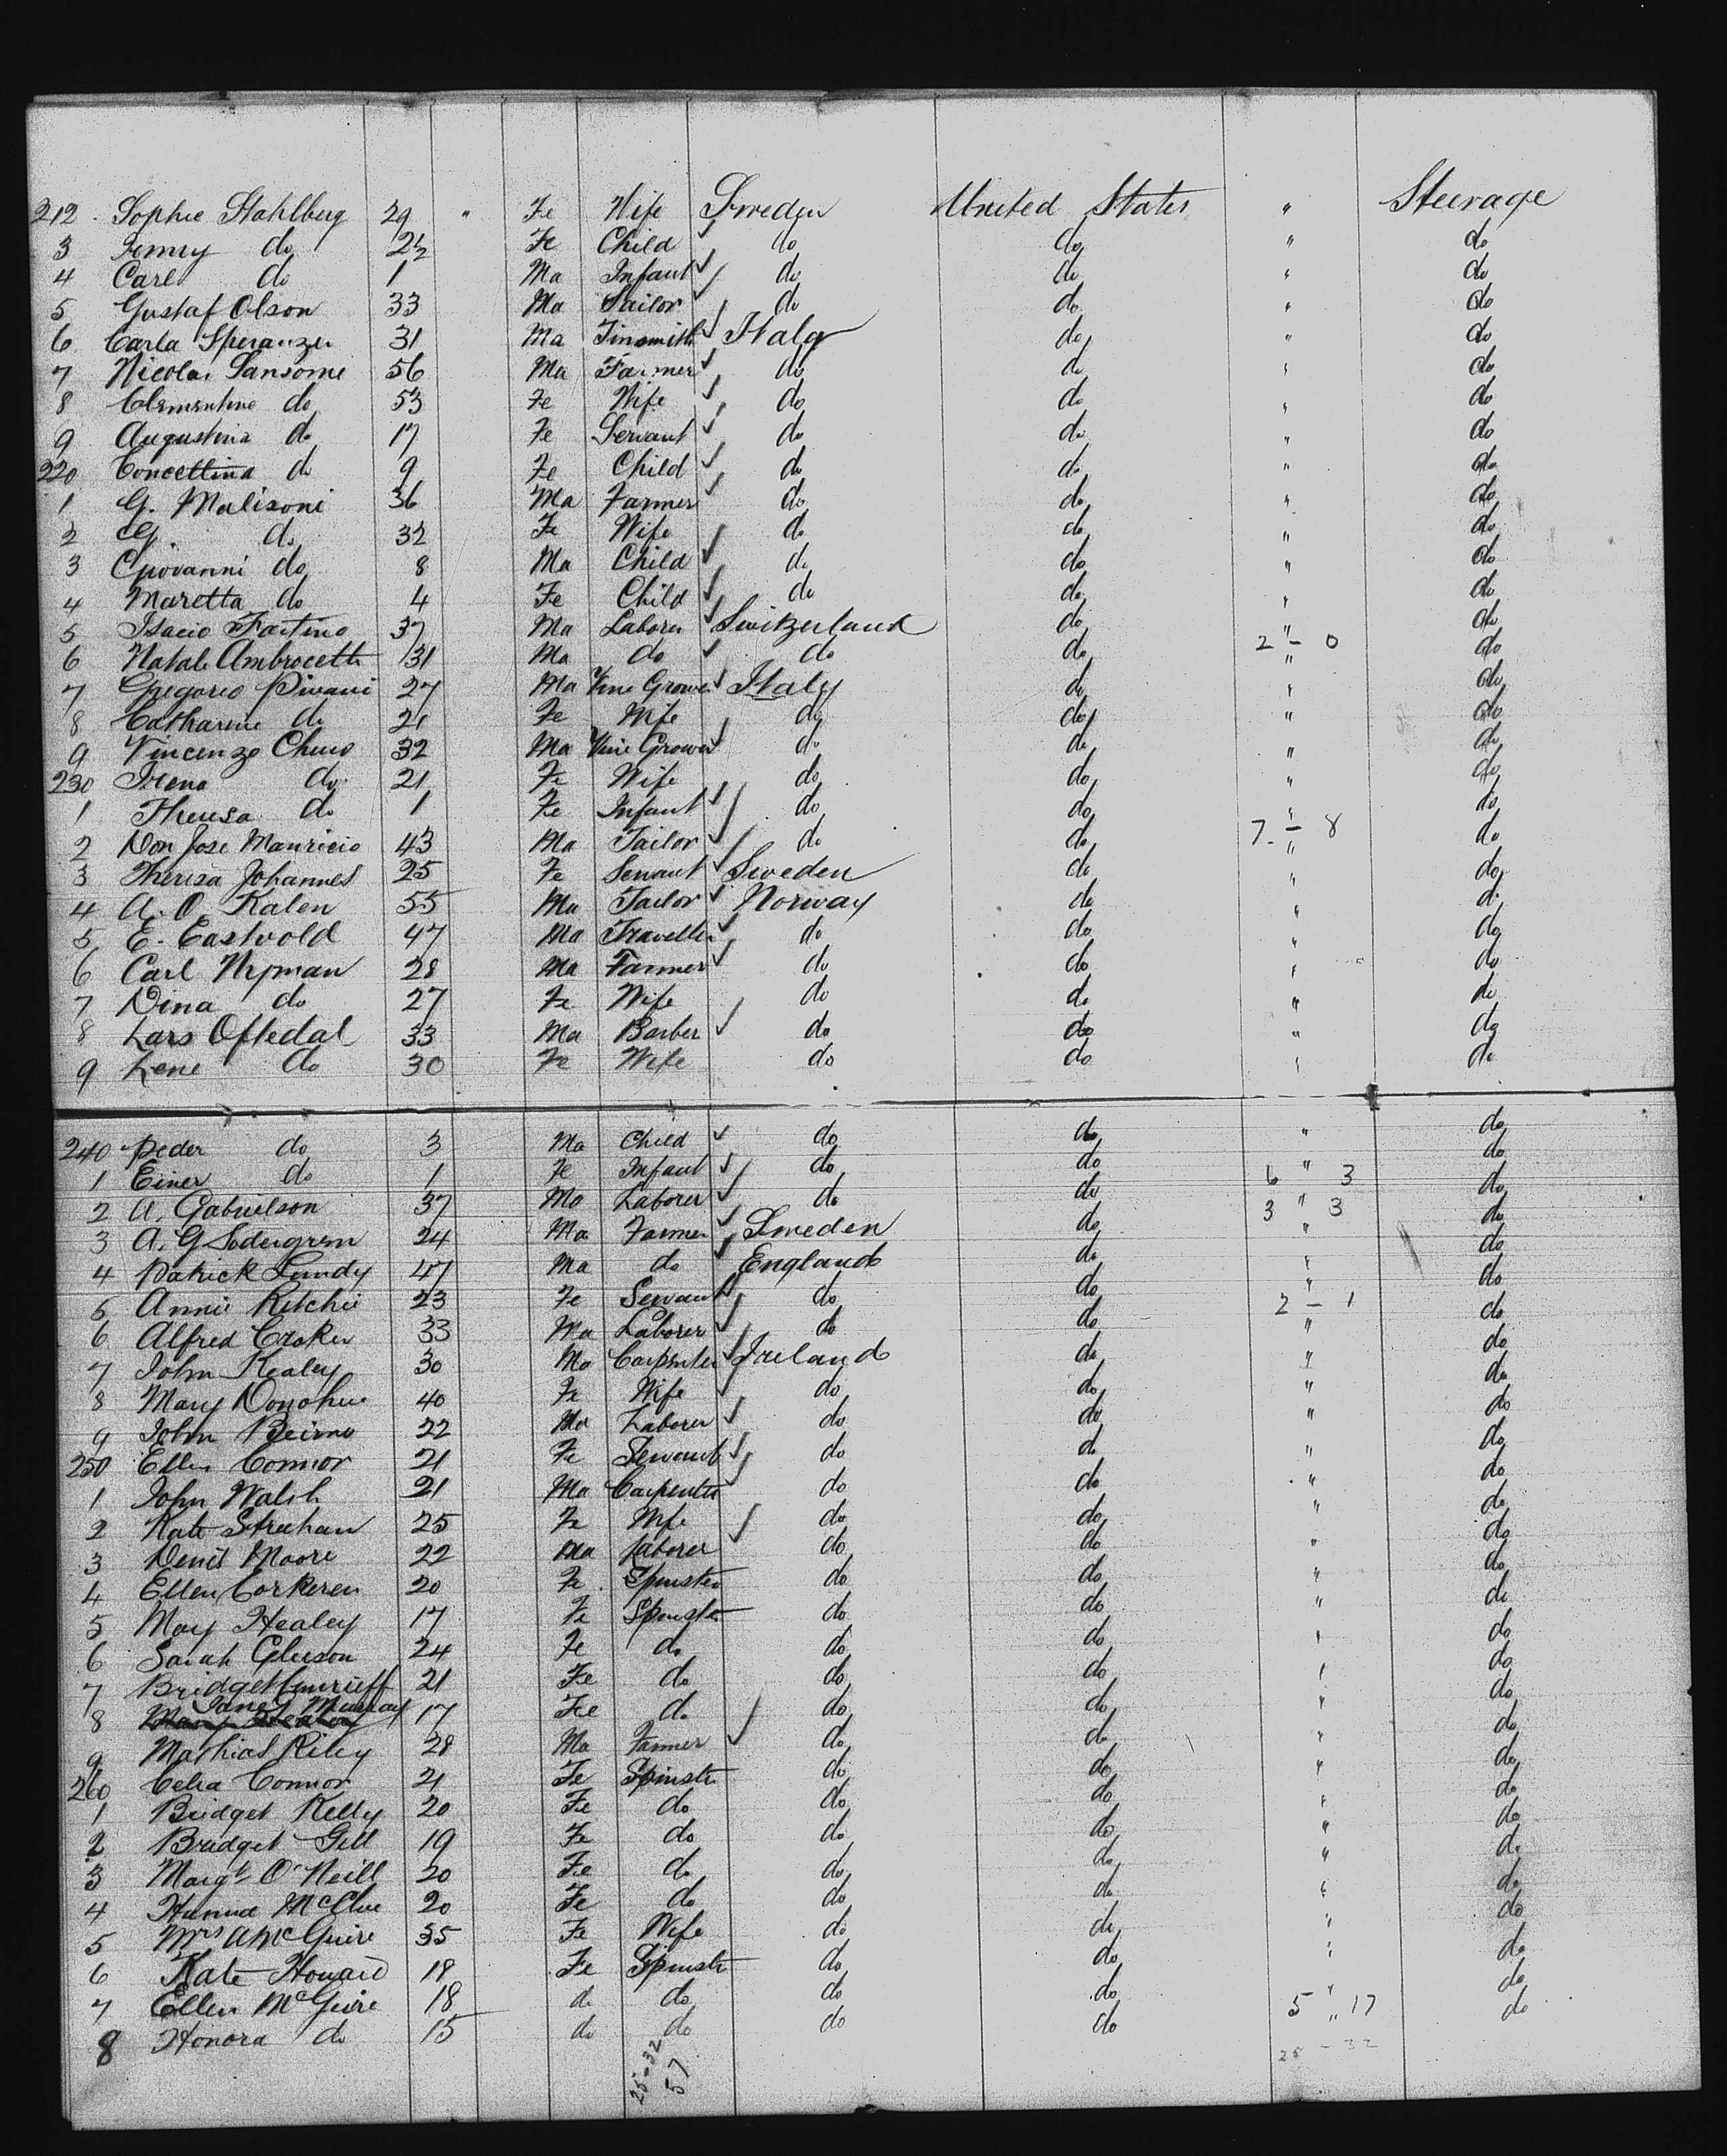 212 Sophie Stahlberg 29 " Fe Wife Sweden United States " Steerage
3 Jenny do 2½ Fe Child ✓ do do " do
4 Carl do 1 Ma Infant ✓ do do " do
5 Gustaf Olson 33 Ma Sailor do do " do
6 Carla Speranzu 31 Ma Tinsmith ✓ Italy do " do
7 Nicolai Sansome 56 Ma Farmer ✓ do do " do
8 Clementine do 53 Fe Wife ✓ do do " do
9 Augustina do 17 Fe Servant ✓ do do " do
220 Concettina do 9 Fe Child ✓ do do " do
1 G. Malisoni 36 Ma Farmer ✓ do do " do
2 G. do 32 Fe Wife do do " do
3 Giovanni do 8 Ma Child ✓ do do " do
4 Maretta do 4 Fe Child ✓ do do " do
5 Isacio 37 Ma Laborer ✓ Switzerland do " do
6 Natale Ambrocetti 31 Ma do ✓ do do 2 - 0 " do
7 Gregorio Pivani 27 Ma Vine Grower ✓ Italy do " do
8 Catharine do 21 Fe Wife do do " do
9 Vincenzo 32 Ma Vine Grower do do " do
230 Irena do 21 Fe Wife do do " do
1 Theresa do 1 Fe Infant ✓ do do " do
2 Don Jose Mauricio 43 Ma Tailor ✓ do do 7 - 8 " do
3 Theresa Johannes 25 Fe Servant ✓ Sweden do " do
4 A. O. Kalen 55 Ma Tailor ✓ Norway do " do
5 E. Eastvold 47 Ma Traveller ✓ do do " do
6 Carl Nyman 28 Ma Farmer ✓ do do " do
7 Dina do 27 Fe Wife do do " do
8 Lars Oftedal 33 Ma Barber ✓ do do " do
9 Lene do 30 Fe Wife do do " do
240 Peder do 3 Ma Child ✓ do do " do
1 Einer do 1 Fe Infant ✓ do do 6 " 3 do
2 A. Gabrielson 37 Ma Laborer ✓ do do 3 " 3 do
3 A. G Sodergren 24 Ma Farmer ✓ Sweden do " do
4 Patrick Lundy 47 Ma do ✓ England do " do
5 Annie Ritchie 23 Fe Servant ✓ do do 2 - 1 do
6 Alfred Croker 33 Ma Laborer ✓ do do " do
7 John Kealey 30 Ma Carpenter ✓ Ireland do " do
8 Mary Donohue 40 Fe Wife do do " do
9 John Beirne 22 Ma Laborer ✓ do do " do
250 Ellen Connor 21 Fe Servant ✓ do do " do
1 John Walsh 21 Ma Carpenter do do " do
2 Kate Strahan 25 Fe Wife do do " do
3 Denis Moore 22 Ma laborer do do " do
4 Ellen Corkeren 20 Fe Spinster do do " do
5 May Healey 17 Fe Spinster do do " do
6 Sarah Gleeson 24 Fe do do do " do
7 Bridget 21 Fe do do do " do
8 Jane Murray 17 Fe do do do " do
9 Mathias Riley 28 Ma Farmer ✓ do do " do
260 Celia Connor 21 Fe Spinster do do " do
1 Bridget Kelly 20 Fe do do do " do
2 Bridget Gill 19 Fe do do do " do
3 Margt O'Neill 20 Fe do do do " do
4 McClue 20 Fe do do do " do
5 Mrs A McGuire 35 Fe Wife do do " do
6 Kate Howard 18 Fe Spinstr do do " do
7 Ellen McGuire 18 do do do do 5 " 17 do
8 Honora do 15 do do do do " do
25-32
57
25 - 32